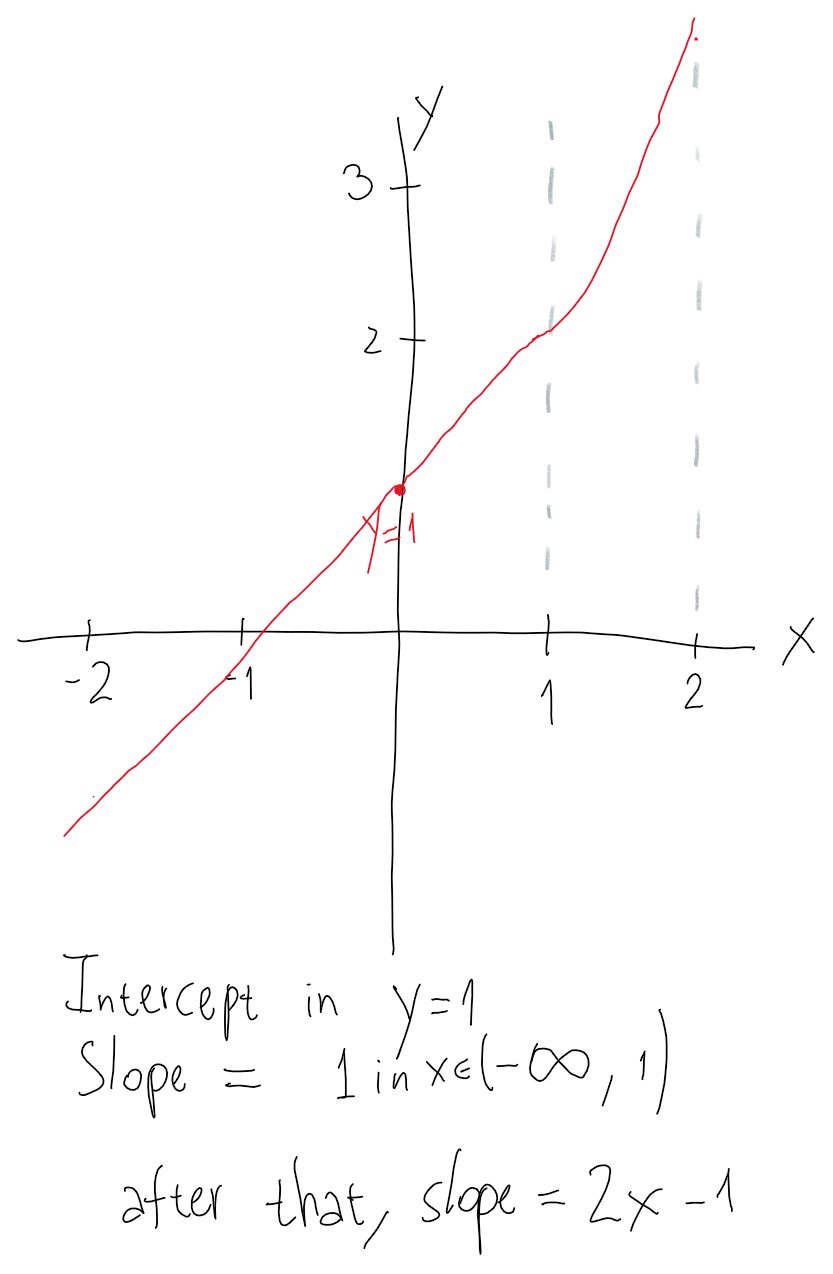 y
3
2
y=1
x
-2
-1
1
2
Intercept in y=1
Slope = 1 in x∈(-∞, 1)
after that, slope = 2x -1